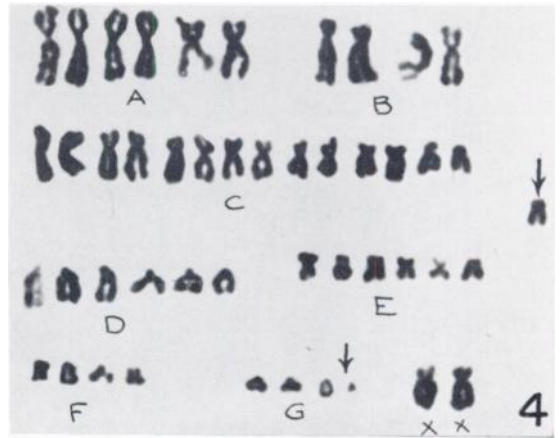 A B
C
D E
F G X X 4